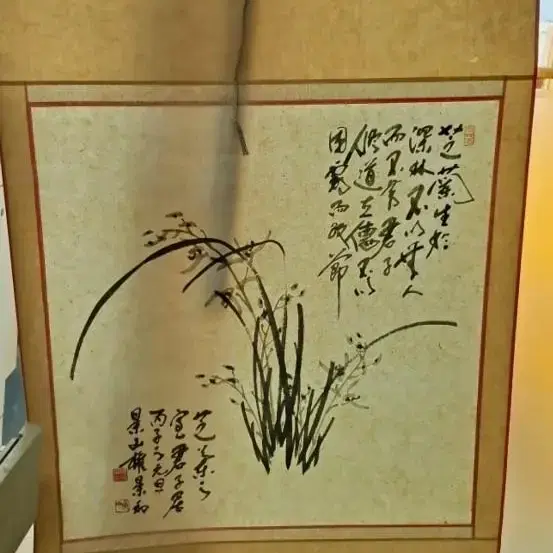 芝蘭生於
深林不以無人
而不芳君子
修道立德不以
困窮而改節
芝蘭之
室君子居
丙子元旦
景山